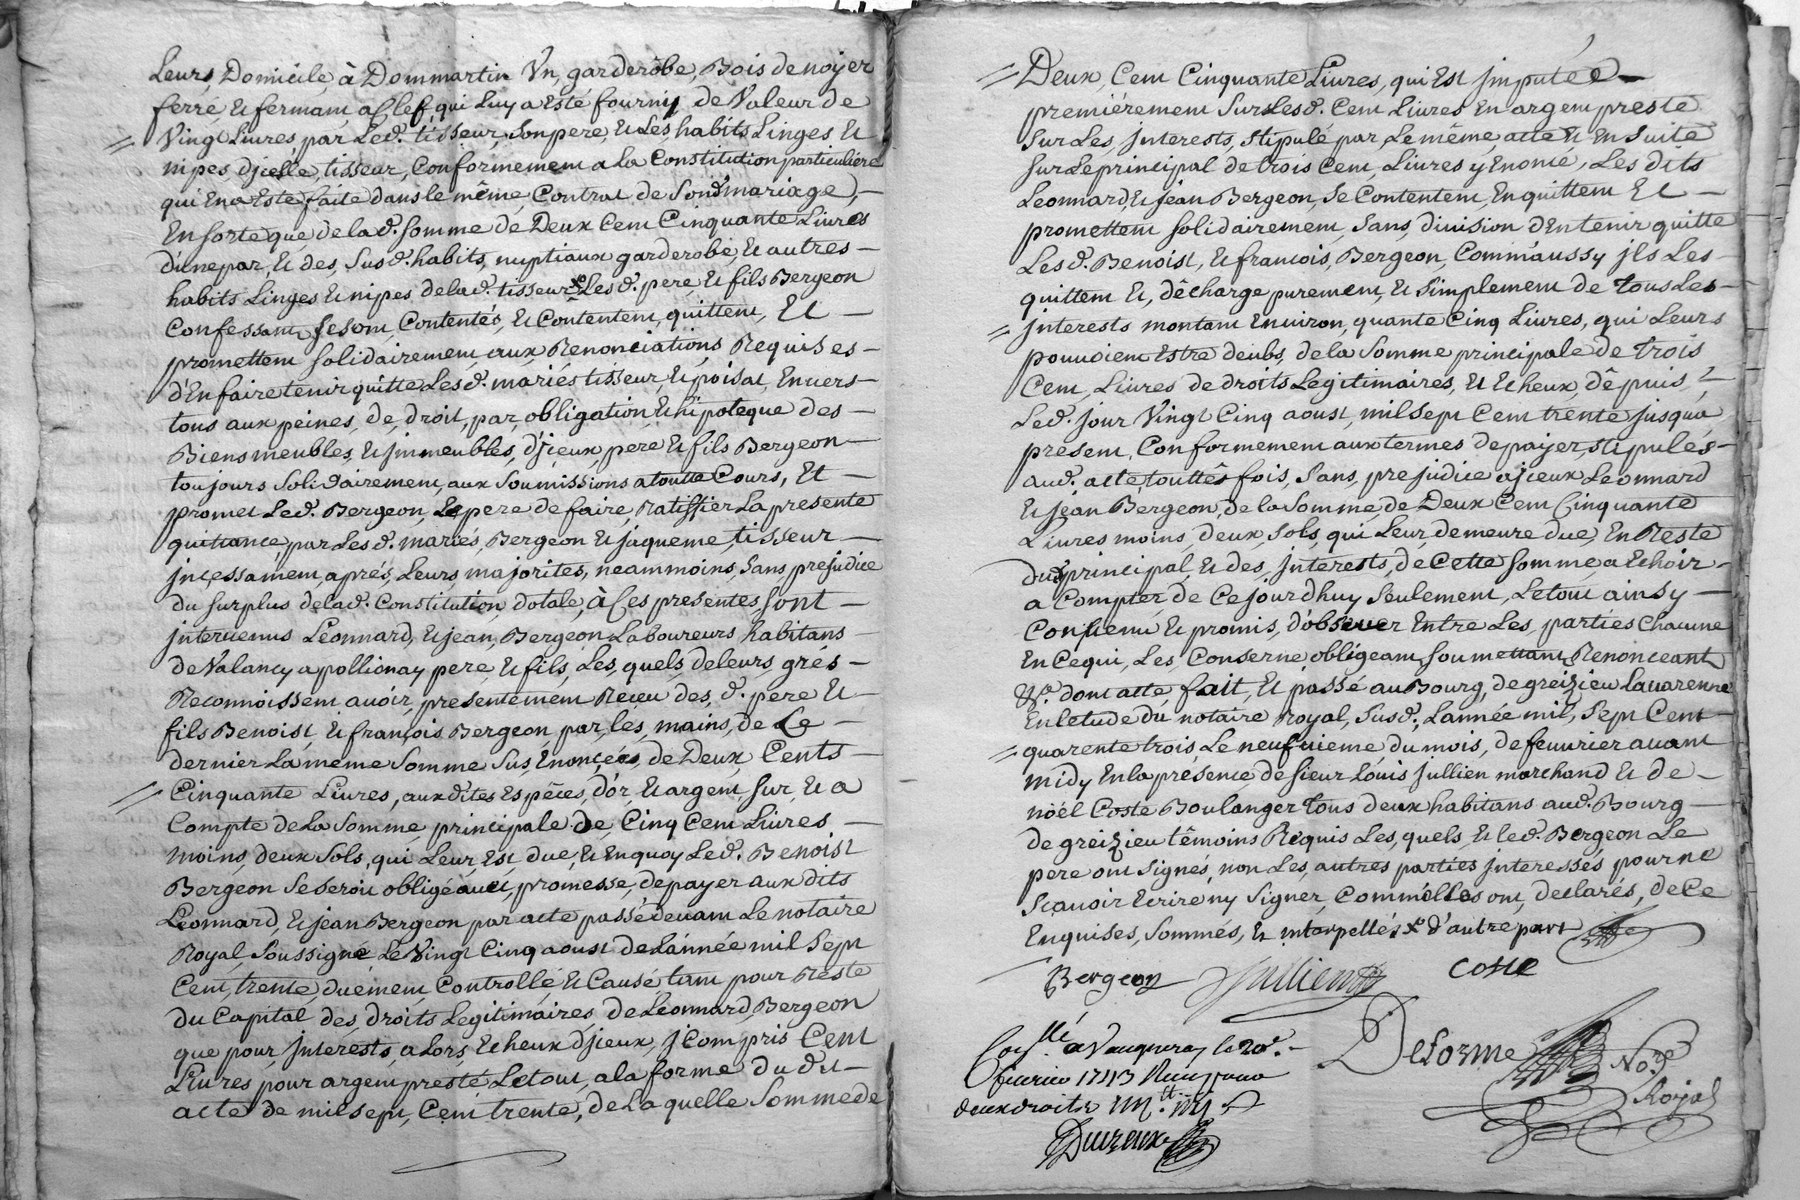 Leurs Domicile à Dommartin Vn garderôbe Bois de noyer
ferré et fermant a Clef, qui Luy a esté fourny de Valeur de
Vingt Livres, par Led. tisseur, son pere, et Les habits Linges et
nipes djcelle, tisseur, Conformement a La Constitution particuliére
qui En a Esté faite dans le même Contrat de Sond. mariage, –
En sorte que de lad. somme de Deux Cent Cinquante Livres
d'une par, et des, Susd. habits nuptiaux garderobe, et autres –
habits Linges et nipes de lad. tisseur x Lesd. pere, et fils Bergeon
Confessant, se sont Contentés, et Contentent, quittent, et –
promettent solidairement, aux Renonciations Requises –
d'En faire tenir quitte Lesd. mariés tisseur et poisat, Envers –
tous aux peines, de, droit, par, obligation, et hipoteque des –
Biens meubles, et jmmeubles, d'jceux, pere et fils Bergeon –
toujours Solidairement, aux Soumissions a toutte Cours, et –
promet Led. Bergeon, Le pere de faire, Ratiffier La presente
quittance, par Lesd. mariés, Bergeon et jaqueme, tisseur –
jncessament, aprés, Leurs majorites, neammoins, Sans, prejudice
du surplus de lad. Constitution, dotale, à Ces presentes, sont –
jntervenus Léonnard, et jean, Bergeon Laboureurs, habitans –
de Valancy a pollionay pere, et fils, Les, quels, de leurs, grés –
Reconnoissent avoir, presentement Reçeu des, d. pere et –
fils Benoist, et françois Bergeon, par, les, mains, de Ce –
dernier La même Somme Sus, Enoncéés, de Deux Cents –
Cinquante Livres, aux dites Espêces, d'or, et argent, sur, et a
Compte de La Somme principale de Cinq Cent Livres –
moins, deux Sols, qui Leur, Est, due, et En quoy Led. Benoist
Bergeon Se seroit obligé avec, promesse, de payer aux dits
Léonnard, et jean Bergeon par acte passé devant Le notaire
Royal, Soussigné Le Vingt Cinq aoust de L'année mil Sept
Cent, trente, duëment, Controllé, et Causé tant pour Reste
du Capital des, droits Legitimaires de Léonnard, Bergeon
que pour, jnterests, a Lors, Echeux d'jceux, j Compris Cent
Livres, pour argent, presté, Le tout, a la forme du dit –
acte de mil sept, Cent trente, de La quelle Somme de
Deux, Cent Cinquante Livres, qui Est jmputéé –
premiérement Sur Lesd. Cent Livres En argent presté
Sur Les, jnterests, stipulé par, Le même acte et En suite
Sur Le principal de trois Cent, Livres y Enoncé, Les dits
Leonnard, et jean Bergeon, Se Contentent, En quittent et –
promettent solidairement, Sans, division d'En tenir quitte
Lesd. Benoist, et francois, Bergeon, Comm'aussy jls Les –
quittent et, dêcharge purement, et Simplement de tous Les –
jnterests montant Environ, quante Cinq Livres, qui Leurs
pouvoient Estre deubs, de la Somme principale de trois
Cent, Livres de droits Legitimaires, et Echeux, dêpuis, –
Led. jour Vingt Cinq aoust, mil sept Cent trente jusqu'a
present, Conformement aux termes de payer, stipulés –
aud. acte, touttes fois, Sans, prejudice a jceux Léonnard
et jean Bergeon, de la Somme de Deux Cent Cinquante
Livres moins, deux, Sols, qui Leur, demeure due, En Reste
dud. principal, et des, jnterests, de Cette Somme, a Echoir –
a Compter de Ce jourdhuy Seulement, Le tout ainsy –
Convenu et promis, d'observer Entre Les, partiés Chacune
En Ce qui, Les Conserne, obligeant, soumettant, Renonceant
&a. dont acte, fait, et passé au Bourg, de greizieu La varenne
En l'etude du notaire Royal, Susd., L'année mil, Sept Cent –
quarente trois, Le neufvieme du mois, de fevvrier avant
midy En la présence de Sieur Loüis jullien marchand et de –
nöél Coste Boulanger tous deux habitans aud. Bourg –
de greizieu têmoins Requis Les, quels, et led. Bergeon Le
pere ont Signés, non Les, autres parties jnteressés pour ne
Sçavoir Ecrire ny Signer, Comm'elles ont, declarés, de Ce
Enquises, Sommés, et interpellés x d'autre part
Bergeon Jullien coste
Con.llé a Vaugneray le 20e. –
fevrier 1743 Reçu
deux droits
Delorme Nore
Roÿal